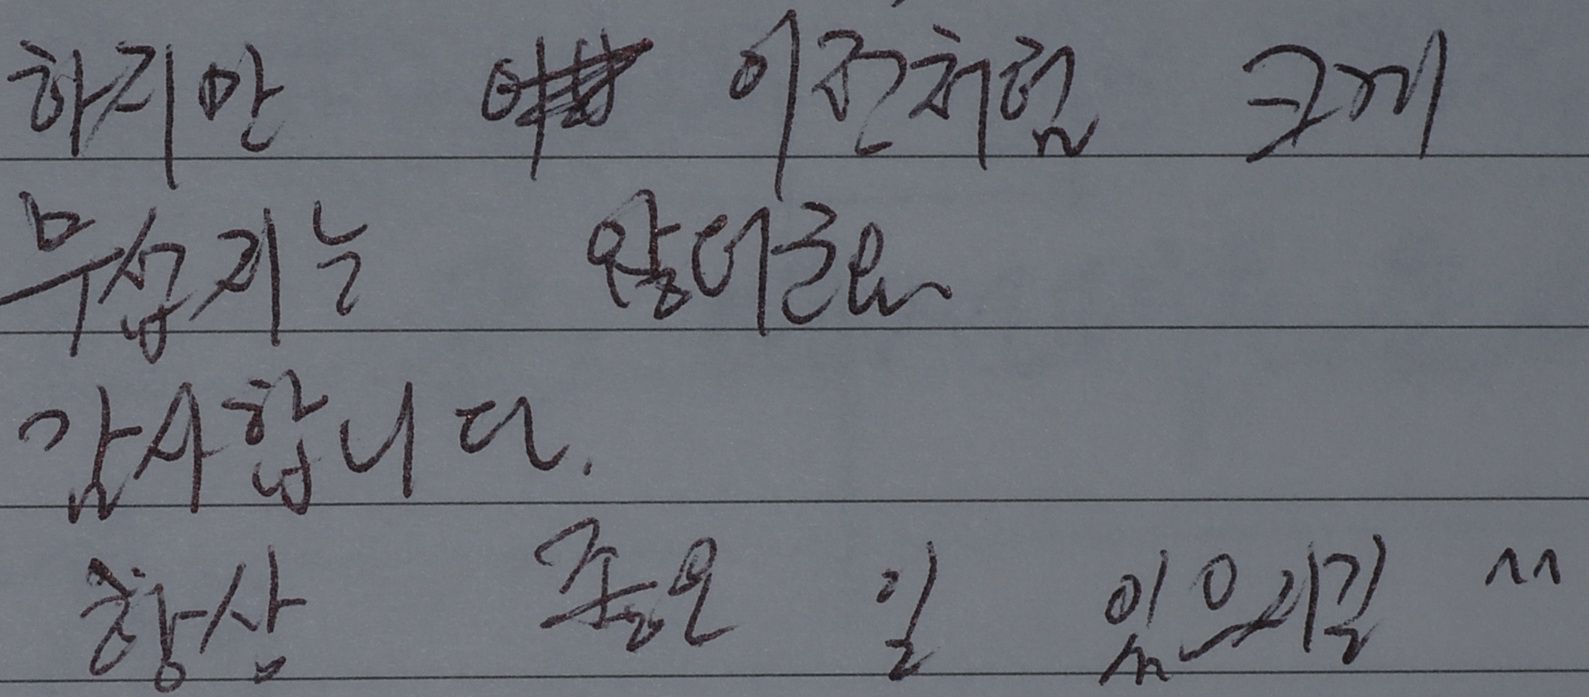 하지만 이전처럼 크게
무섭지는 않더군요
감사합니다.
항상 좋은 일 있으시길 ^^